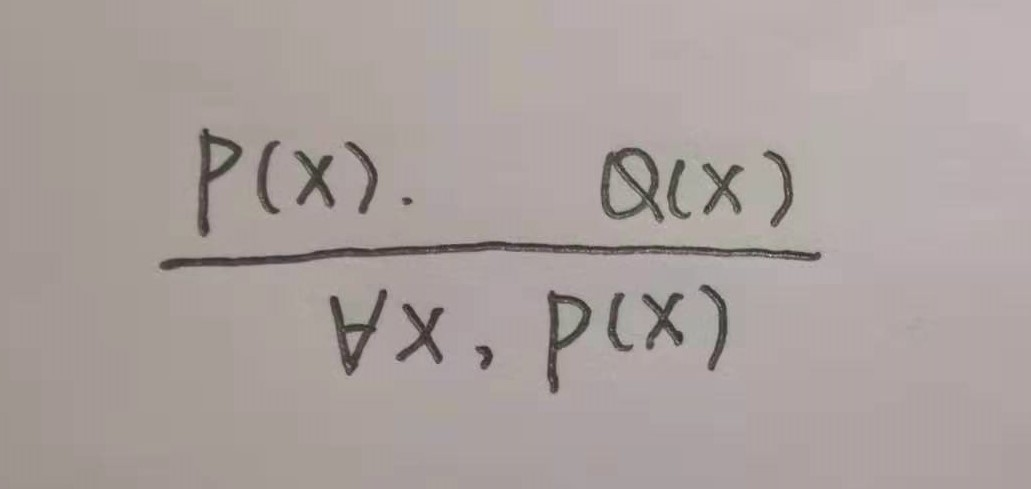 P(X). Q(X)
∀X, P(X)